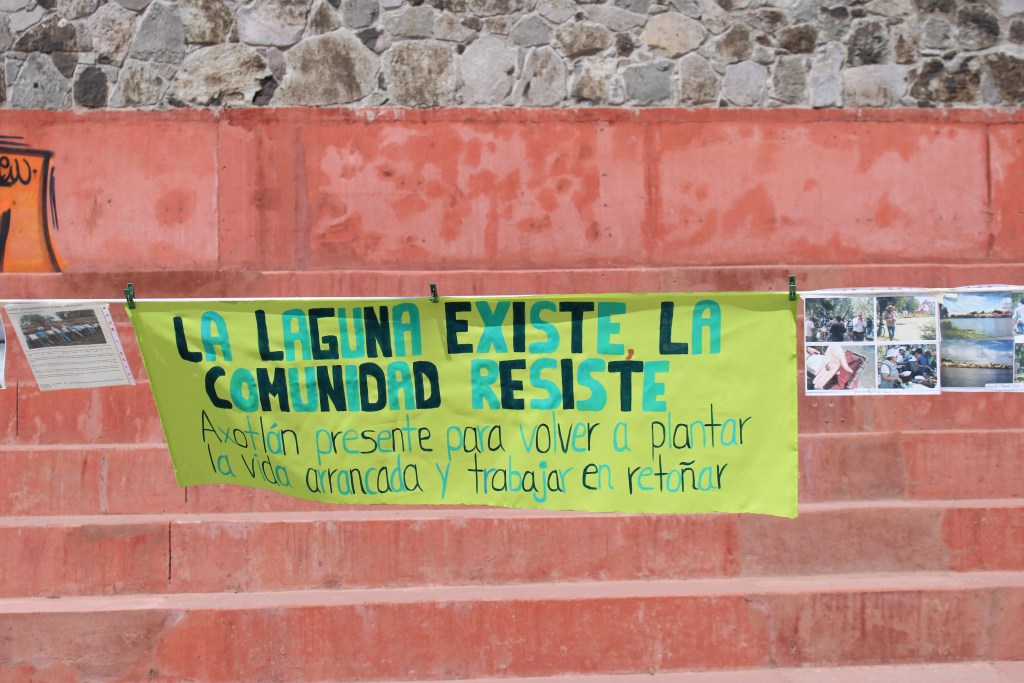 LA LAGUNA EXISTE, LA
COMUNIDAD RESISTE
Axotlán presente para volver a plantar
la vida arrancada y trabajar en retoñar